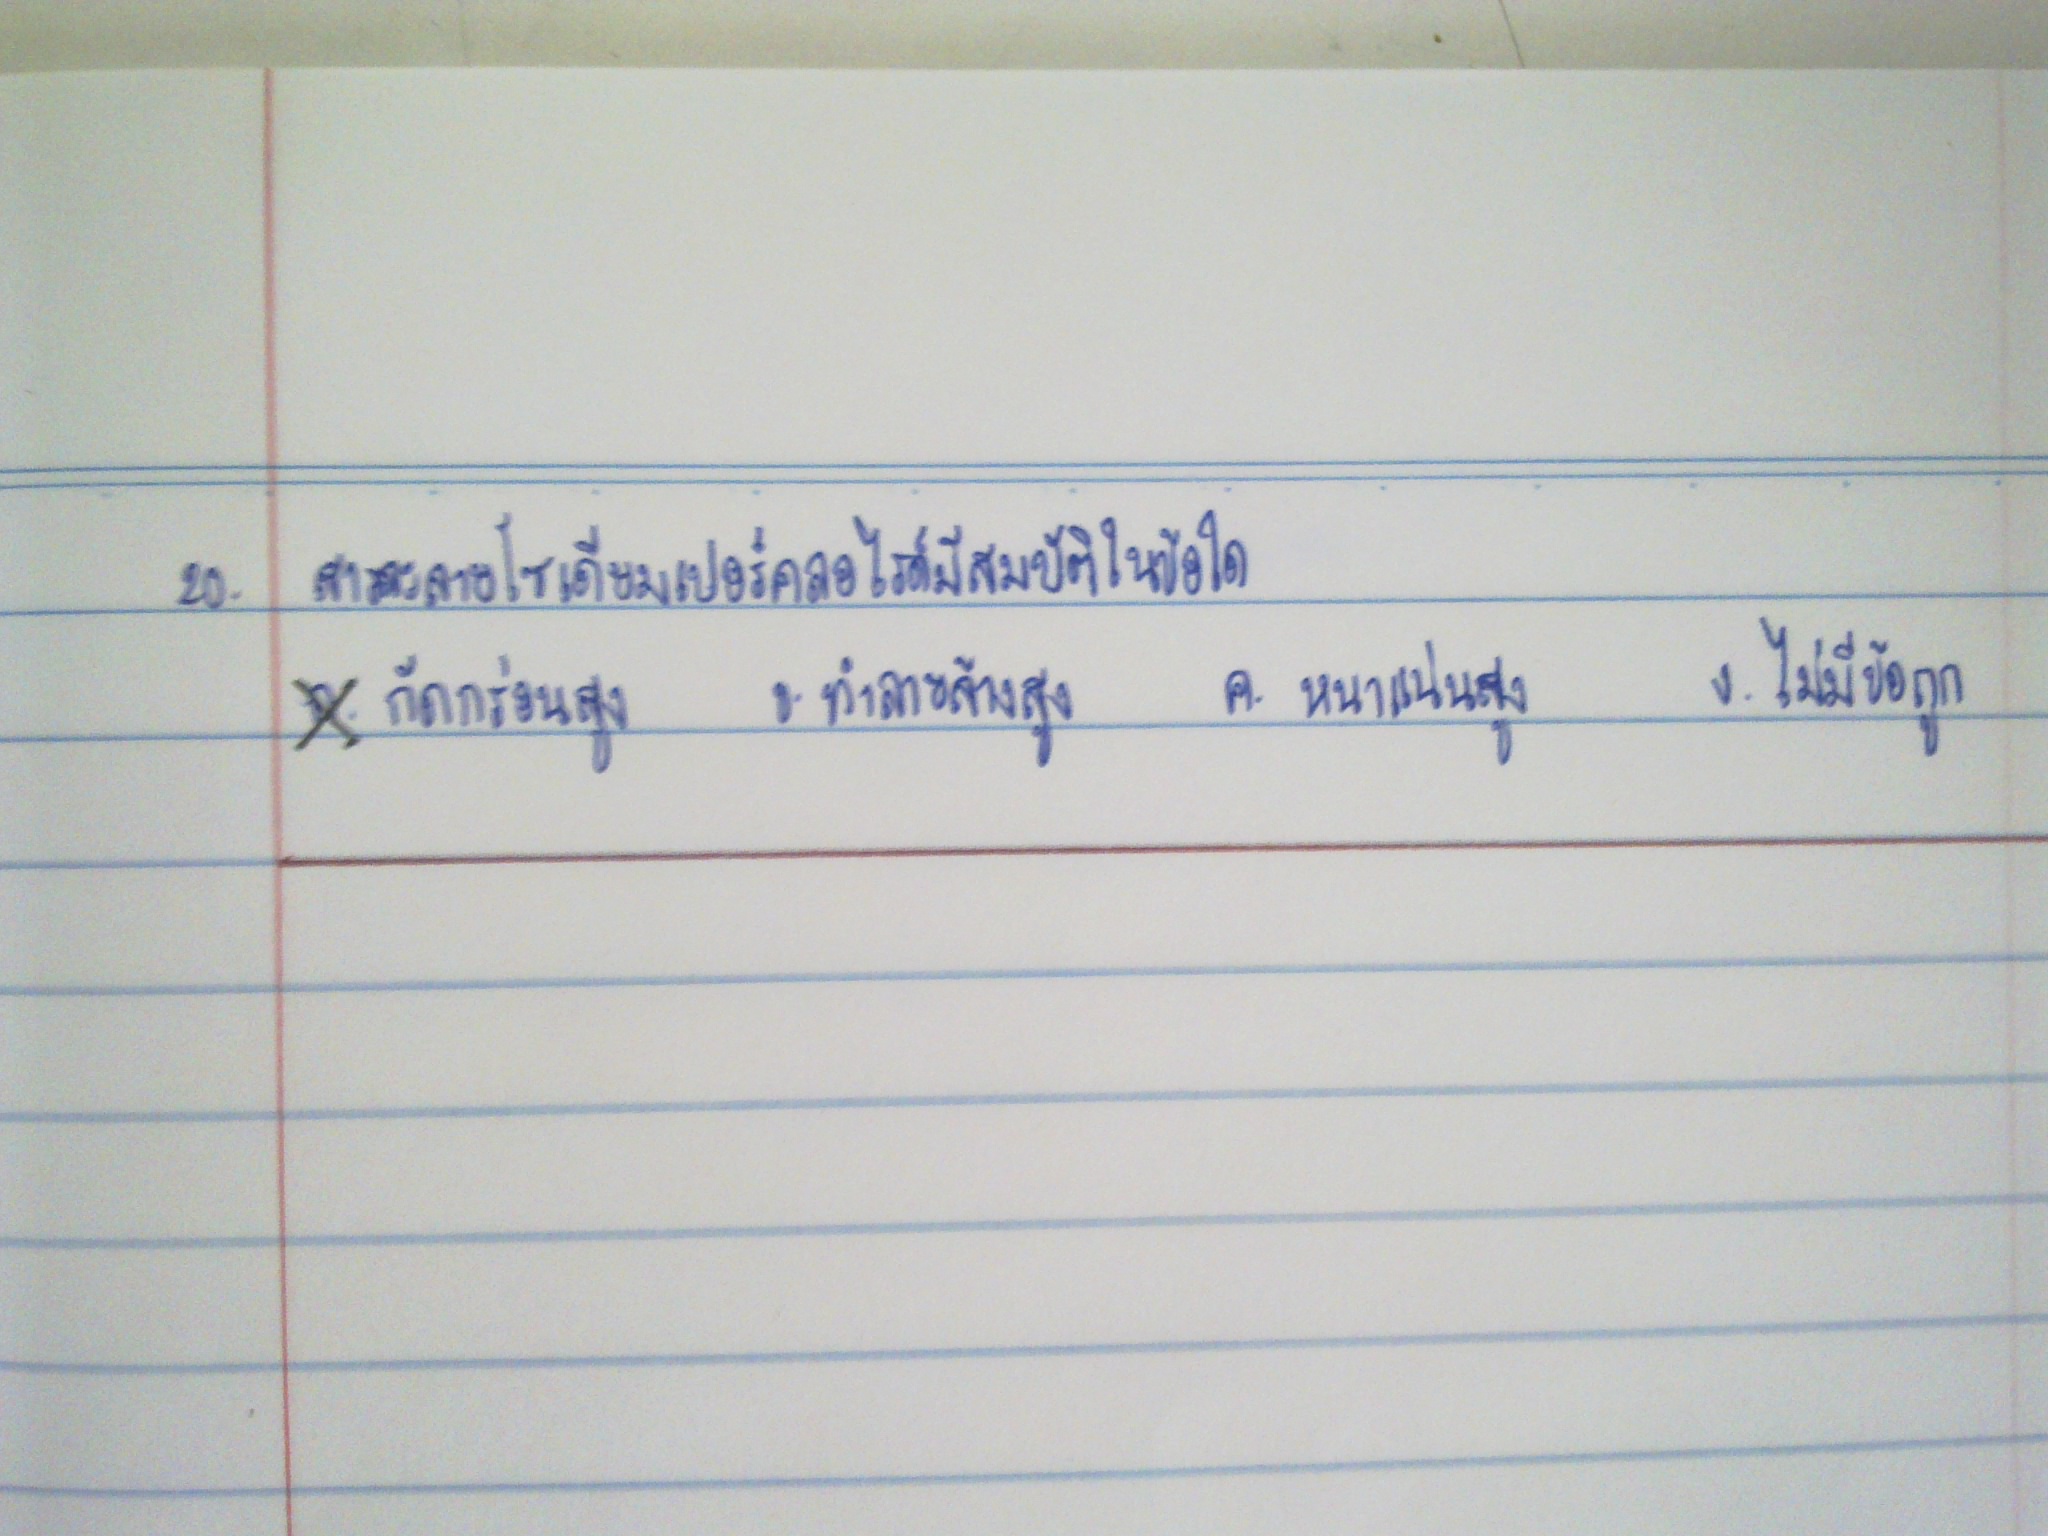 20. สารละลายโซเดียมเปอร์คลอไรด์มีสมบัติในข้อใด
ก. กัดกร่อนสูง ข. ทำลายล้างสูง ค. หนาแน่นสูง ง. ไม่มีข้อถูก